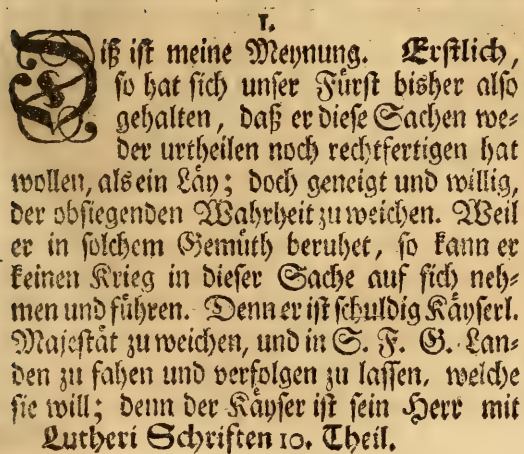 I.
Diß ist meine Meynung. Erstlich,
so hat sich unser Fürst bisher also
gehalten, daß er diese Sachen we-
der urtheilen noch rechtfertigen hat
wollen, als ein Läy; doch geneigt und willig,
der obsiegenden Wahrheit zu weichen. Weil
er in solchem Gemüth beruhet, so kann er
keinen Krieg in dieser Sache auf sich neh-
men und führen. Denn er ist schuldig Käyserl.
Majestät zu weichen, und in S. F. G. Lan-
den zu fahen und verfolgen zu lassen, welche
sie will; denn der Käyser ist sein Herr mit
Lutheri Schriften 10. Theil.